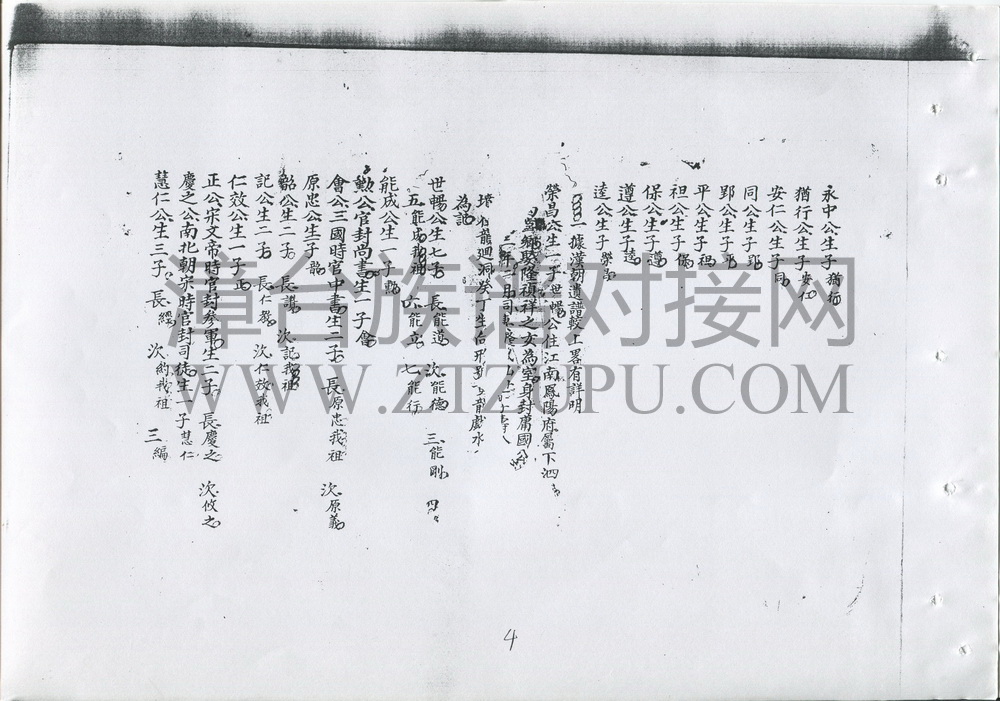 永中公生子猶行
猶行公生子安仁
安仁公生子同
同公生子郢
郢公生子平
平公生子袒
袒公生子保
保公生子遵
遵公生子逵
逵公生子榮昌
據漢朝遺譜較上畧有詳明
榮昌公生一子世暢公住江南鳳陽府屬下泗
鄉駿隆禎祥之女為室身封庸國公
龍廻洞癸丁生
龍戲水
為記
世暢公生七子 長能進 次能德 三能剛 四
五能成我祖 六能立 七能行
能成公生一子勲
勲公官封尚書生一子會
會公三國時官中書生二子 長原忠我祖 次原義
原忠公生子韶
韶公生二子 長謨 次記我祖
記公生二子 長仁 次仁效我祖
仁效公生一子正
正公宋文帝時官封參軍生二子 長慶之 次攸之
慶之公南北朝宋時官封司徒生一子慧仁
慧仁公生三子 長繹 次約我祖 三編
4
漳台族谱对接网
WWW.ZTZUPU.COM